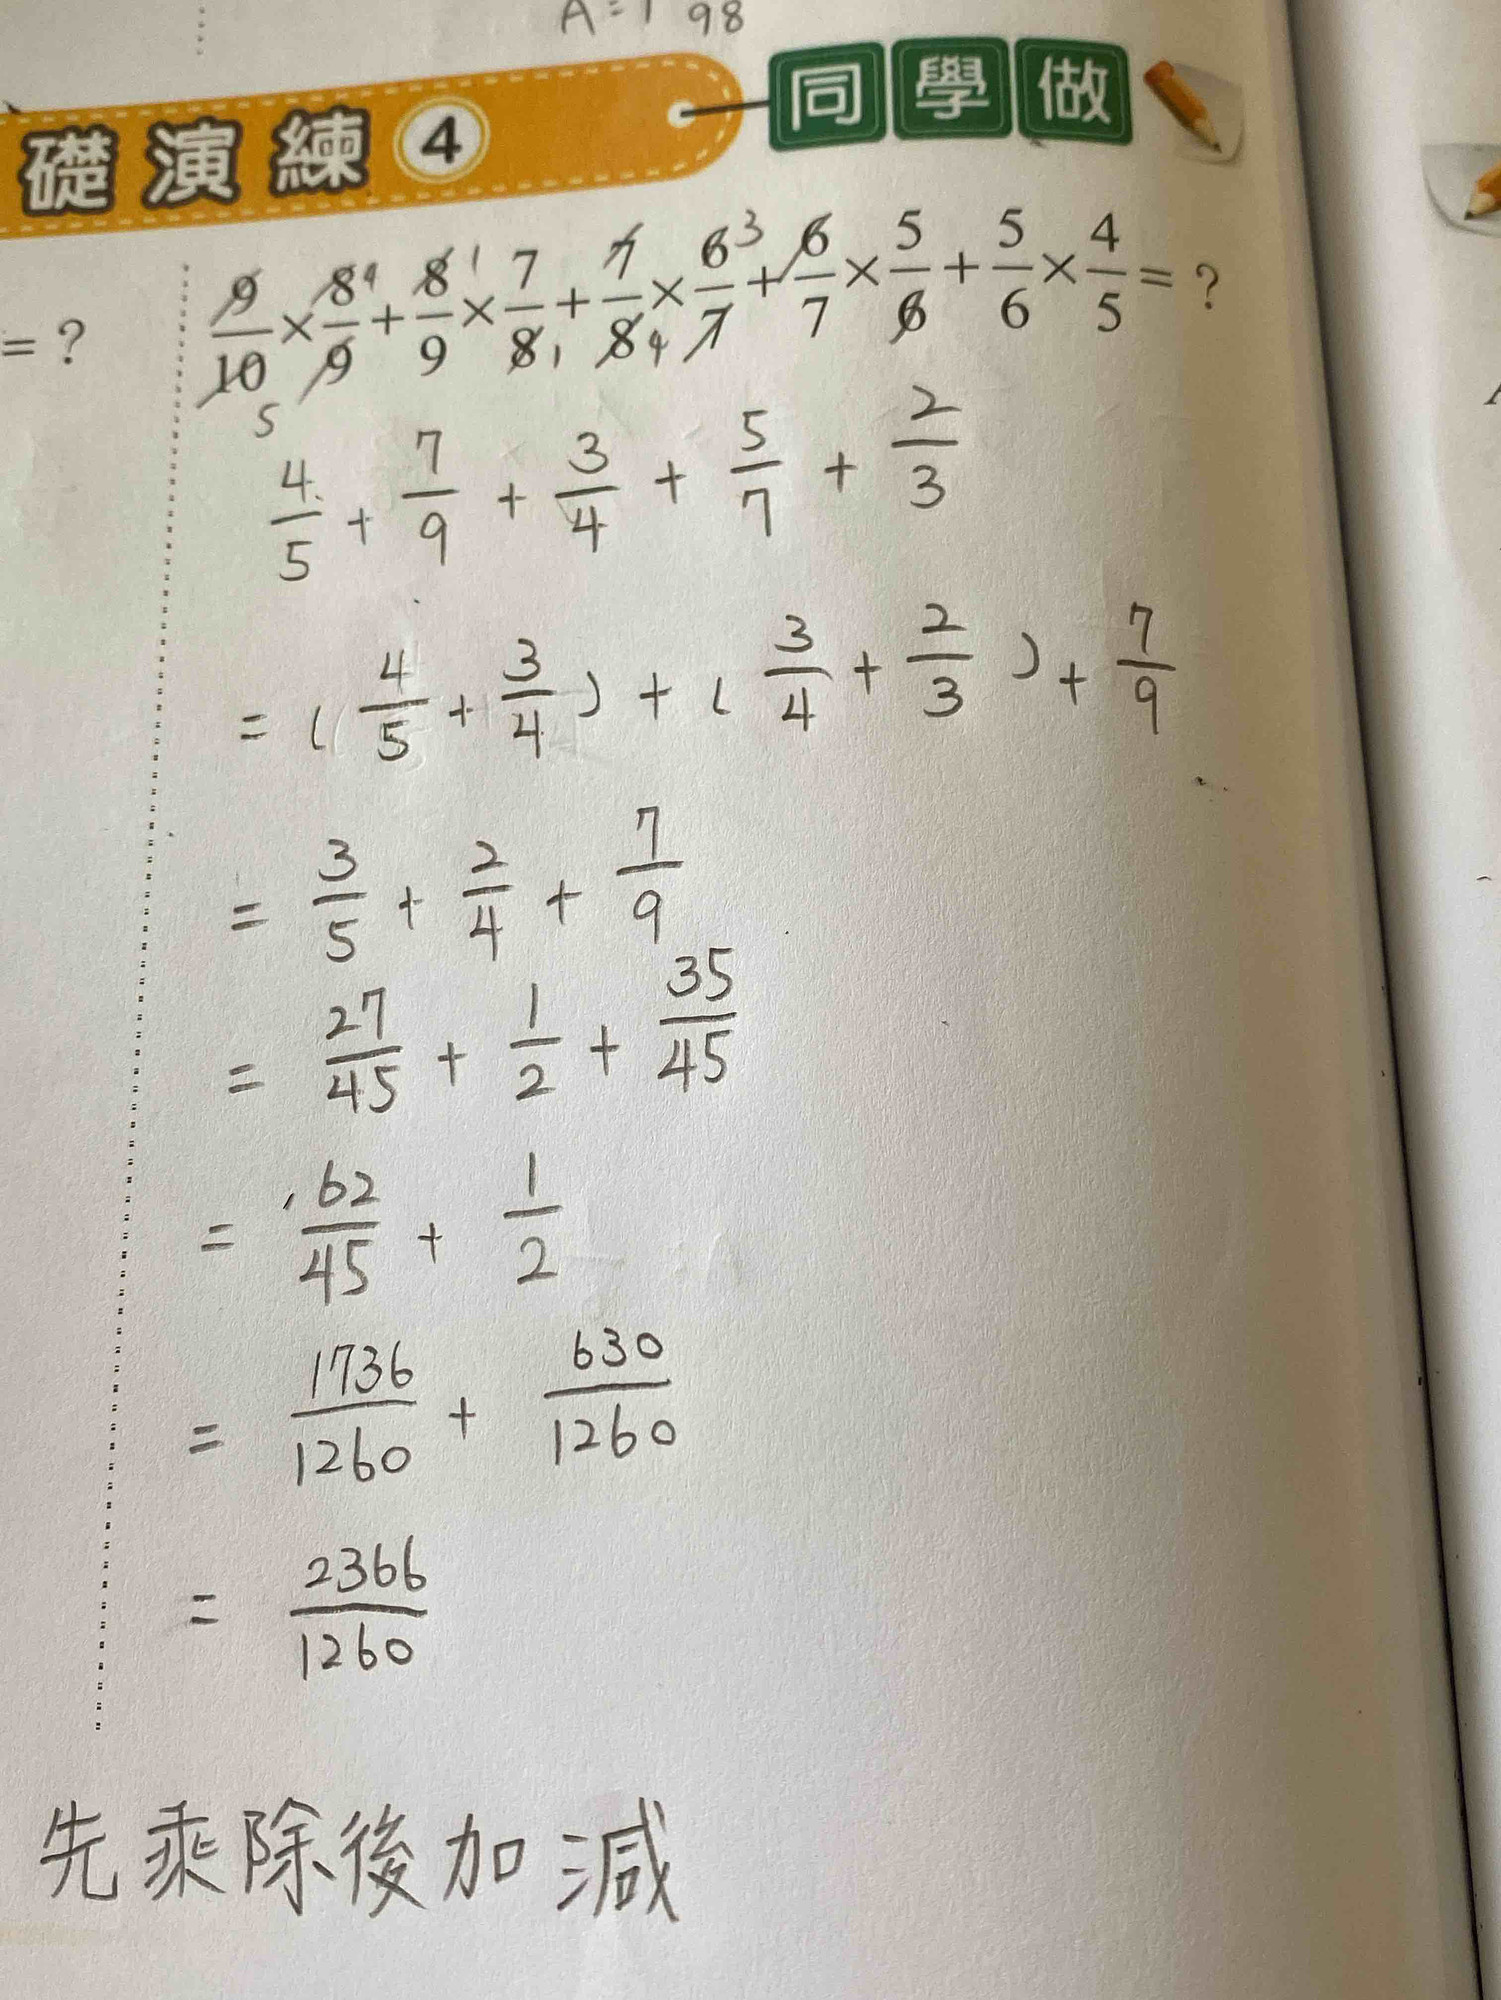 A=1 98
礎演練 4 同學做
= ?
9/10 × 8/9 + 8/9 × 7/8 + 7/8 × 6/7 + 6/7 × 5/6 + 5/6 × 4/5 = ?
4/5 + 7/9 + 3/4 + 5/7 + 2/3
= ( 4/5 + 3/4 ) + ( 3/4 + 2/3 ) + 7/9
= 3/5 + 2/4 + 7/9
= 27/45 + 1/2 + 35/45
= 62/45 + 1/2
= 1736/1260 + 630/1260
= 2366/1260
先乘除後加減